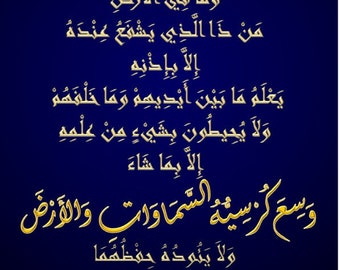 وَمَا فِي الْأَرْضِ
مَنْ ذَا الَّذِي يَشْفَعُ عِنْدَهُ
إِلَّا بِإِذْنِهِ
يَعْلَمُ مَا بَيْنَ أَيْدِيهِمْ وَمَا خَلْفَهُمْ
وَلَا يُحِيطُونَ بِشَيْءٍ مِنْ عِلْمِهِ
إِلَّا بِمَا شَاءَ
وَسِعَ كُرْسِيُّهُ السَّمَاوَاتِ وَالْأَرْضَ
وَلَا يَئُودُهُ حِفْظُهُمَا